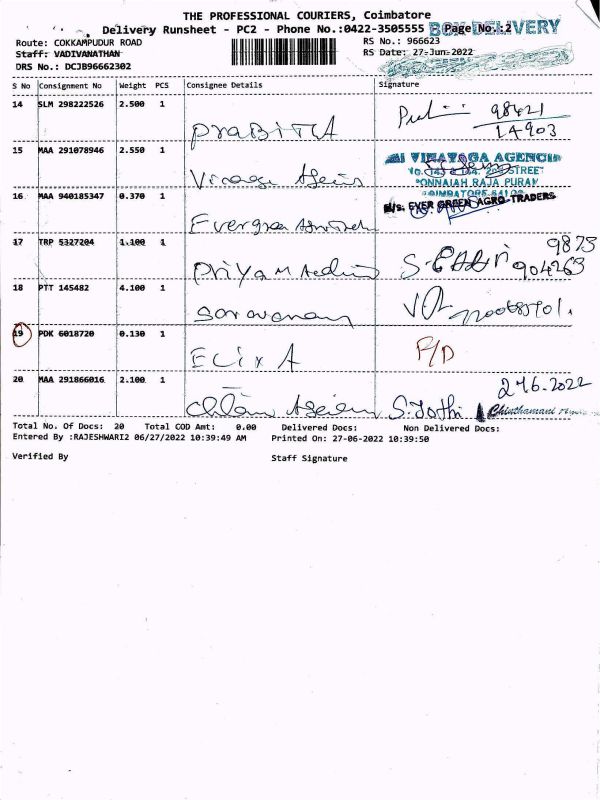 THE PROFESSIONAL COURIERS, Coimbatore
Delivery Runsheet - PC2 - Phone No.:0422-3505555 Page No.:2
BOX DELIVERY
Route: COKKAMPUDUR ROAD RS No.: 966623
Staff: VADIVANATHAN RS Date: 27-Jun-2022
DRS No.: DCJB96662302
S No Consignment No Weight PCS Consignee Details Signature
14 SLM 298222526 2.500 1
PRABITHA 98421
14903
15 MAA 291078946 2.550 1
VINAYAGA AGENCIE
STREET
PONNAIAH RAJA PURAM
COIMBATORE
16 MAA 940185347 0.370 1
M/s. EVER GREEN AGRO TRADERS
Evergreen
17 TRP 5327204 1.100 1
Priya 9873
904263
18 PTT 145482 4.100 1
Saravanan
19 PDK 6018720 0.130 1
ELIXA P/D
20 MAA 291866016 2.100 1
S. Jothi Chinthamani
Total No. Of Docs: 20 Total COD Amt: 0.00 Delivered Docs: Non Delivered Docs:
Entered By :RAJESHWARI2 06/27/2022 10:39:49 AM Printed On: 27-06-2022 10:39:50
Verified By Staff Signature